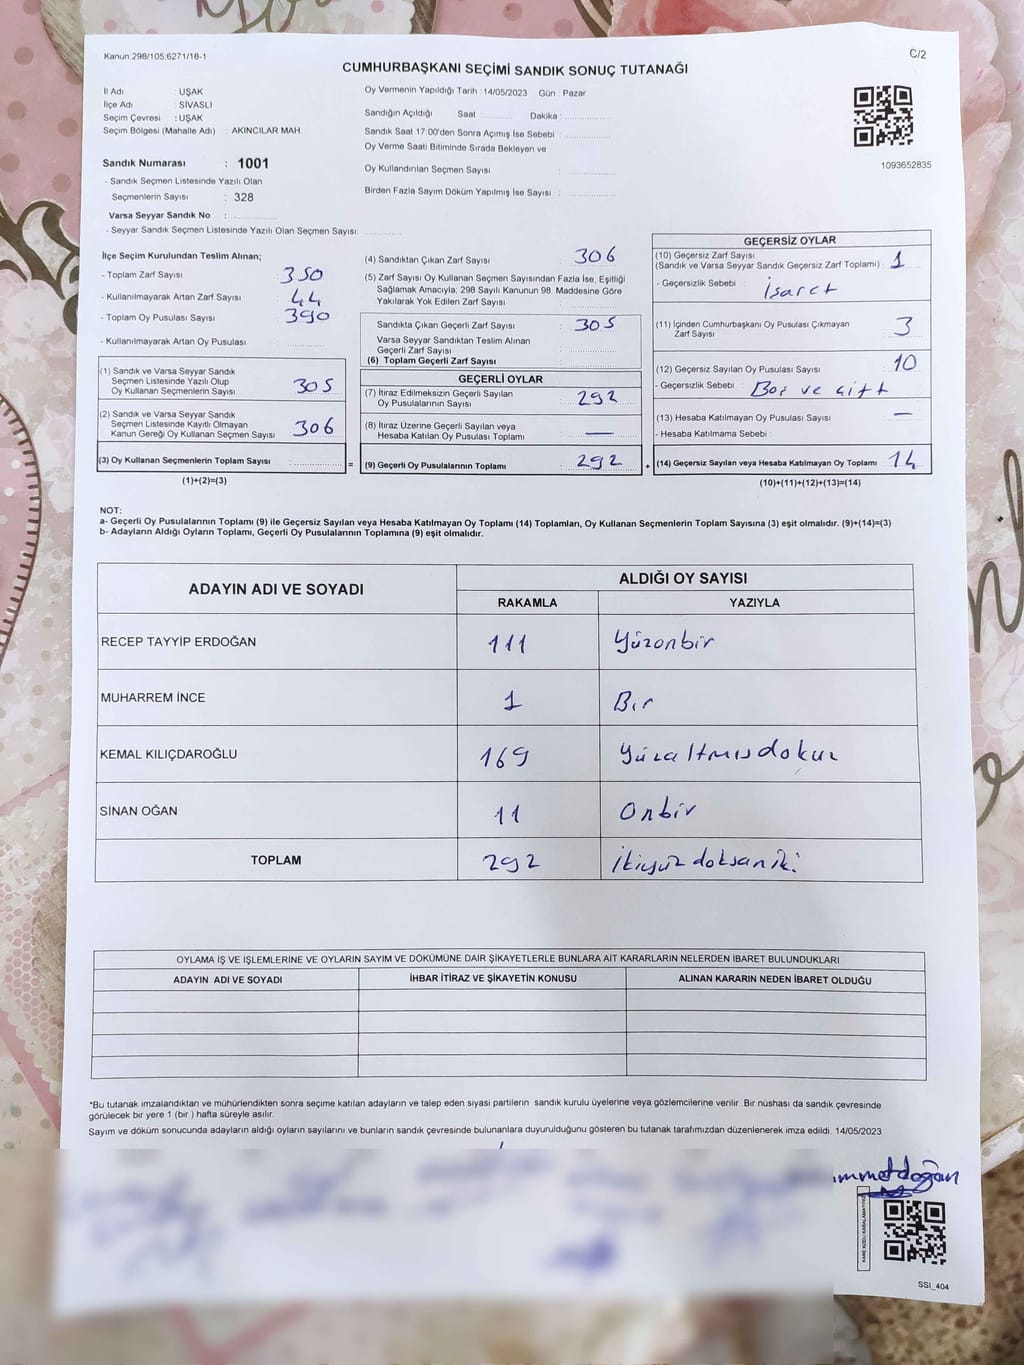 Kanun:298/105:6271/18-1
C/2
CUMHURBAŞKANI SEÇİMİ SANDIK SONUÇ TUTANAĞI
İl Adı : UŞAK
İlçe Adı : SİVASLI
Seçim Çevresi : UŞAK
Seçim Bölgesi (Mahalle Adı) : AKINCILAR MAH.
Sandık Numarası : 1001
- Sandık Seçmen Listesinde Yazılı Olan
Seçmenlerin Sayısı : 328
Varsa Seyyar Sandık No :
- Seyyar Sandık Seçmen Listesinde Yazılı Olan Seçmen Sayısı:
Oy Vermenin Yapıldığı Tarih :14/05/2023 Gün : Pazar
Sandığın Açıldığı Saat Dakika :
Sandık Saat 17.00'den Sonra Açımış İse Sebebi :
Oy Verme Saati Bitiminde Sırada Bekleyen ve
Oy Kullandırılan Seçmen Sayısı :
Birden Fazla Sayım Döküm Yapılmış İse Sayısı :
1093652835
İlçe Seçim Kurulundan Teslim Alınan;
- Toplam Zarf Sayısı : 350
- Kullanılmayarak Artan Zarf Sayısı : 44
- Toplam Oy Pusulası Sayısı : 390
- Kullanılmayarak Artan Oy Pusulası :
(1) Sandık ve Varsa Seyyar Sandık
Seçmen Listesinde Yazılı Olup
Oy Kullanan Seçmenlerin Sayısı : 305
(2) Sandık ve Varsa Seyyar Sandık
Seçmen Listesinde Kayıtlı Olmayan
Kanun Gereği Oy Kullanan Seçmen Sayısı : 306
(3) Oy Kullanan Seçmenlerin Toplam Sayısı :
(1)+(2)=(3)
(4) Sandıktan Çıkan Zarf Sayısı : 306
(5) Zarf Sayısı Oy Kullanan Seçmen Sayısından Fazla İse, Eşitliği
Sağlamak Amacıyla; 298 Sayılı Kanunun 98. Maddesine Göre
Yakılarak Yok Edilen Zarf Sayısı :
Sandıkta Çıkan Geçerli Zarf Sayısı : 305
Varsa Seyyar Sandıktan Teslim Alınan
Geçerli Zarf Sayısı :
(6) Toplam Geçerli Zarf Sayısı
GEÇERLİ OYLAR
(7) İtiraz Edilmeksizin Geçerli Sayılan
Oy Pusulalarının Sayısı : 292
(8) İtiraz Üzerine Geçerli Sayılan veya
Hesaba Katılan Oy Pusulası Toplamı : —
= (9) Geçerli Oy Pusulalarının Toplamı : 292 +
GEÇERSİZ OYLAR
(10) Geçersiz Zarf Sayısı
(Sandık ve Varsa Seyyar Sandık Geçersiz Zarf Toplamı) : 1
- Geçersizlik Sebebi : İşaret
(11) İçinden Cumhurbaşkanı Oy Pusulası Çıkmayan
Zarf Sayısı : 3
(12) Geçersiz Sayılan Oy Pusulası Sayısı : 10
- Geçersizlik Sebebi : Boş ve çift
(13) Hesaba Katılmayan Oy Pusulası Sayısı : —
- Hesaba Katılmama Sebebi :
(14) Geçersiz Sayılan veya Hesaba Katılmayan Oy Toplamı : 14
(10)+(11)+(12)+(13)=(14)
NOT:
a- Geçerli Oy Pusulalarının Toplamı (9) ile Geçersiz Sayılan veya Hesaba Katılmayan Oy Toplamı (14) Toplamları, Oy Kullanan Seçmenlerin Toplam Sayısına (3) eşit olmalıdır. (9)+(14)=(3)
b- Adayların Aldığı Oyların Toplamı, Geçerli Oy Pusulalarının Toplamına (9) eşit olmalıdır.
ADAYIN ADI VE SOYADI ALDIĞI OY SAYISI
RAKAMLA YAZIYLA
RECEP TAYYİP ERDOĞAN 111 Yüzonbir
MUHARREM İNCE 1 Bir
KEMAL KILIÇDAROĞLU 169 Yüzaltmışdokuz
SİNAN OĞAN 11 Onbir
TOPLAM 292 İkiyüzdoksaniki
OYLAMA İŞ VE İŞLEMLERİNE VE OYLARIN SAYIM VE DÖKÜMÜNE DAİR ŞİKAYETLERLE BUNLARA AİT KARARLARIN NELERDEN İBARET BULUNDUKLARI
ADAYIN ADI VE SOYADI İHBAR İTİRAZ VE ŞİKAYETİN KONUSU ALINAN KARARIN NEDEN İBARET OLDUĞU
*Bu tutanak imzalandıktan ve mühürlendikten sonra seçime katılan adayların ve talep eden siyasi partilerin sandık kurulu üyelerine veya gözlemcilerine verilir .Bir nüshası da sandık çevresinde
görülecek bir yere 1 (bir ) hafta süreyle asılır.
Sayım ve döküm sonucunda adayların aldığı oyların sayılarını ve bunların sandık çevresinde bulunanlara duyurulduğunu gösteren bu tutanak tarafımızdan düzenlenerek imza edildi. 14/05/2023
mmetdoğan
SSİ_404